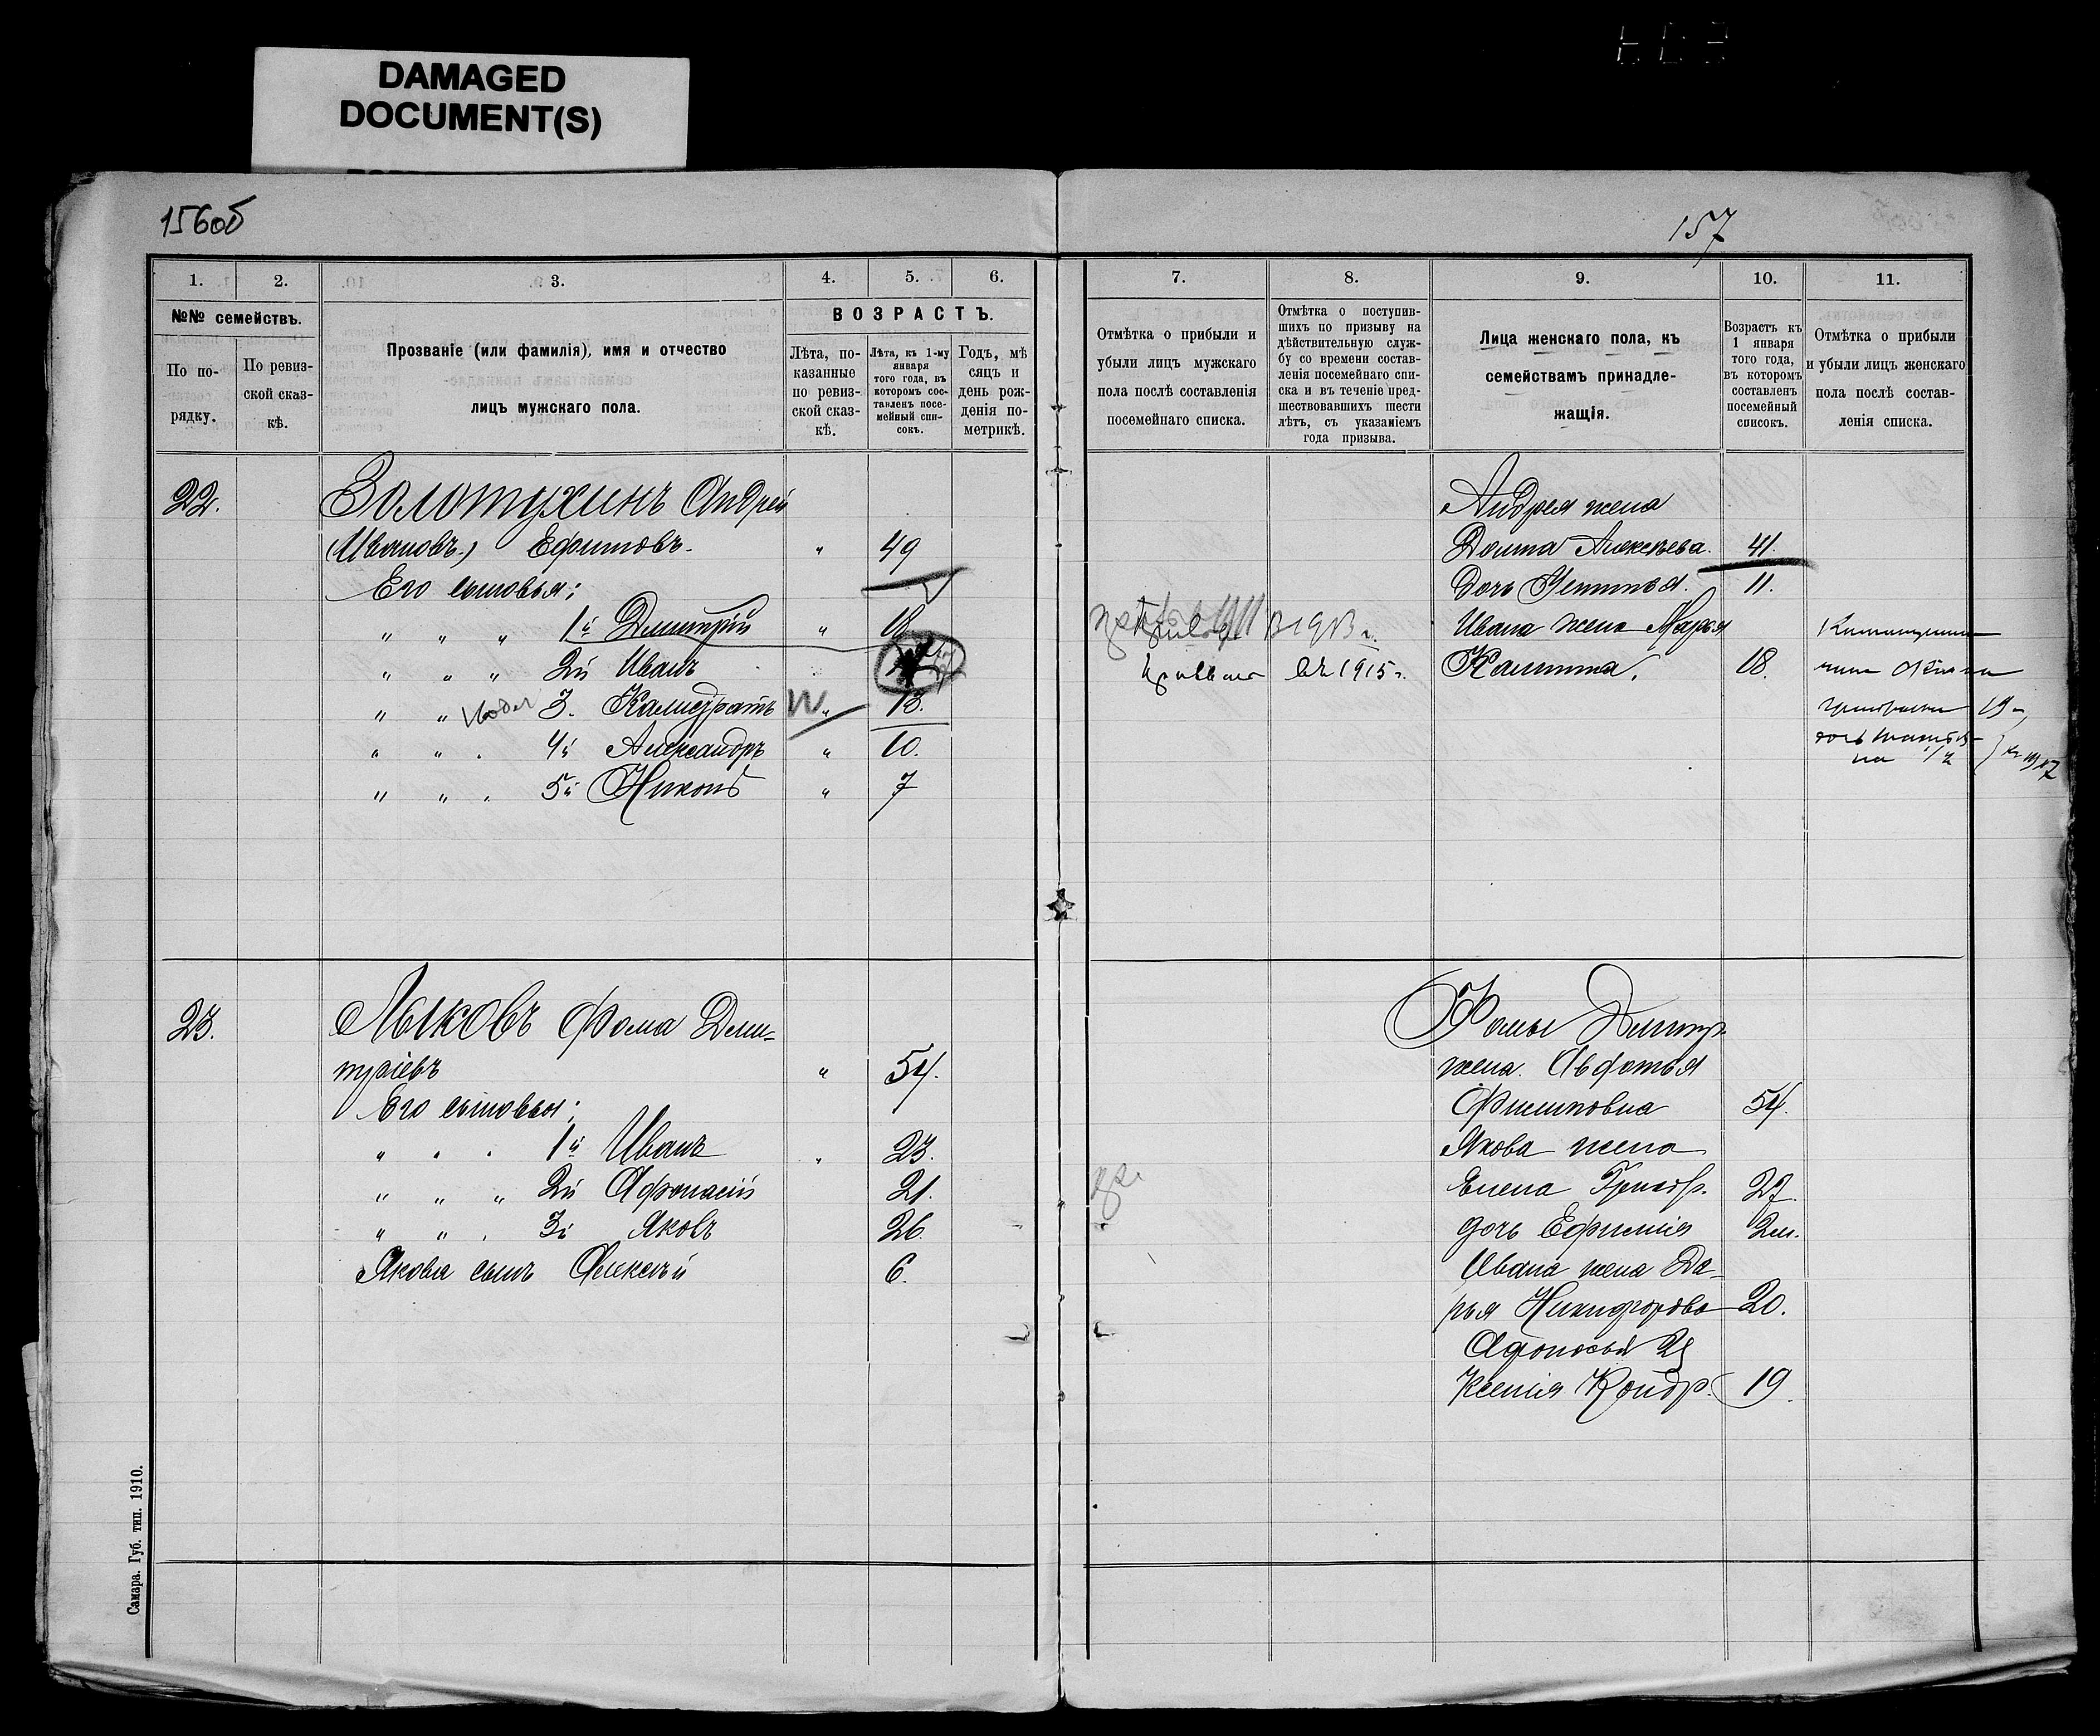 DAMAGED
DOCUMENT(S)
156об
157
1.
2.
3.
4.
5.
6.
№№ семействъ.
По по-
рядку.
По ревиз-
ской сказ-
кѣ.
Прозваніе (или фамилія), имя и отчество
лицъ мужскаго пола.
ВОЗРАСТЪ.
Лѣта, по-
казанные
по ревиз-
ской сказ-
кѣ.
Лѣта, къ 1-му
января
того года, въ
которомъ сос-
тавленъ посе-
мейный спи-
сокъ.
Годъ, мѣ
сяцъ и
день рож-
денія по-
метрикѣ.
22.
Золотухинъ Андрей
(Ивановъ) Ефимовъ. " 49
Его сыновья:
" " " 1й Дмитрій " 18
" " " 2й Иванъ
" " 3. Калистратъ " 13.
" " " 4й Александръ " 10.
" " " 5й Никонъ " 7
23.
Лыковъ Фома Дми-
тріевъ " 54.
Его сыновья:
" " " 1й Иванъ " 23.
" " " 2й Афонасій 21.
" " " 3й Яковъ 26.
Якова сынъ Алексѣй 6.
Самара. Губ. тип. 1910.
7.
8.
9.
10.
11.
Отмѣтка о прибыли и
убыли лицъ мужскаго
пола послѣ составленія
посемейнаго списка.
Отмѣтка о поступив-
шихъ по призыву на
дѣйствительную служ-
бу со времени состав-
ленія посемейнаго спи-
ска и въ теченіе пред-
шествовавшихъ шести
лѣтъ, съ указаніемъ
года призыва.
Лица женскаго пола, къ
семействамъ принадле-
жащія.
Возрастъ къ
1 января
того года,
въ которомъ
составленъ
посемейный
списокъ.
Отмѣтка о прибыли
и убыли лицъ женскаго
пола послѣ состав-
ленія списка.
Андрея жена
Домна Алексѣева. 41.
дочь Устинья. 11.
В 1913 г. Ивана жена Марья
въ 1915 г. 18.
дочь
Фомы Дмитр.
жена Авдотья
Филиповна 54.
Якова жена
Елена Григор. 27.
дочь Ефимія 2м.
Ивана жена Да-
рья Никифорова 20.
Афонасья
Ксенія Кондр. 19.